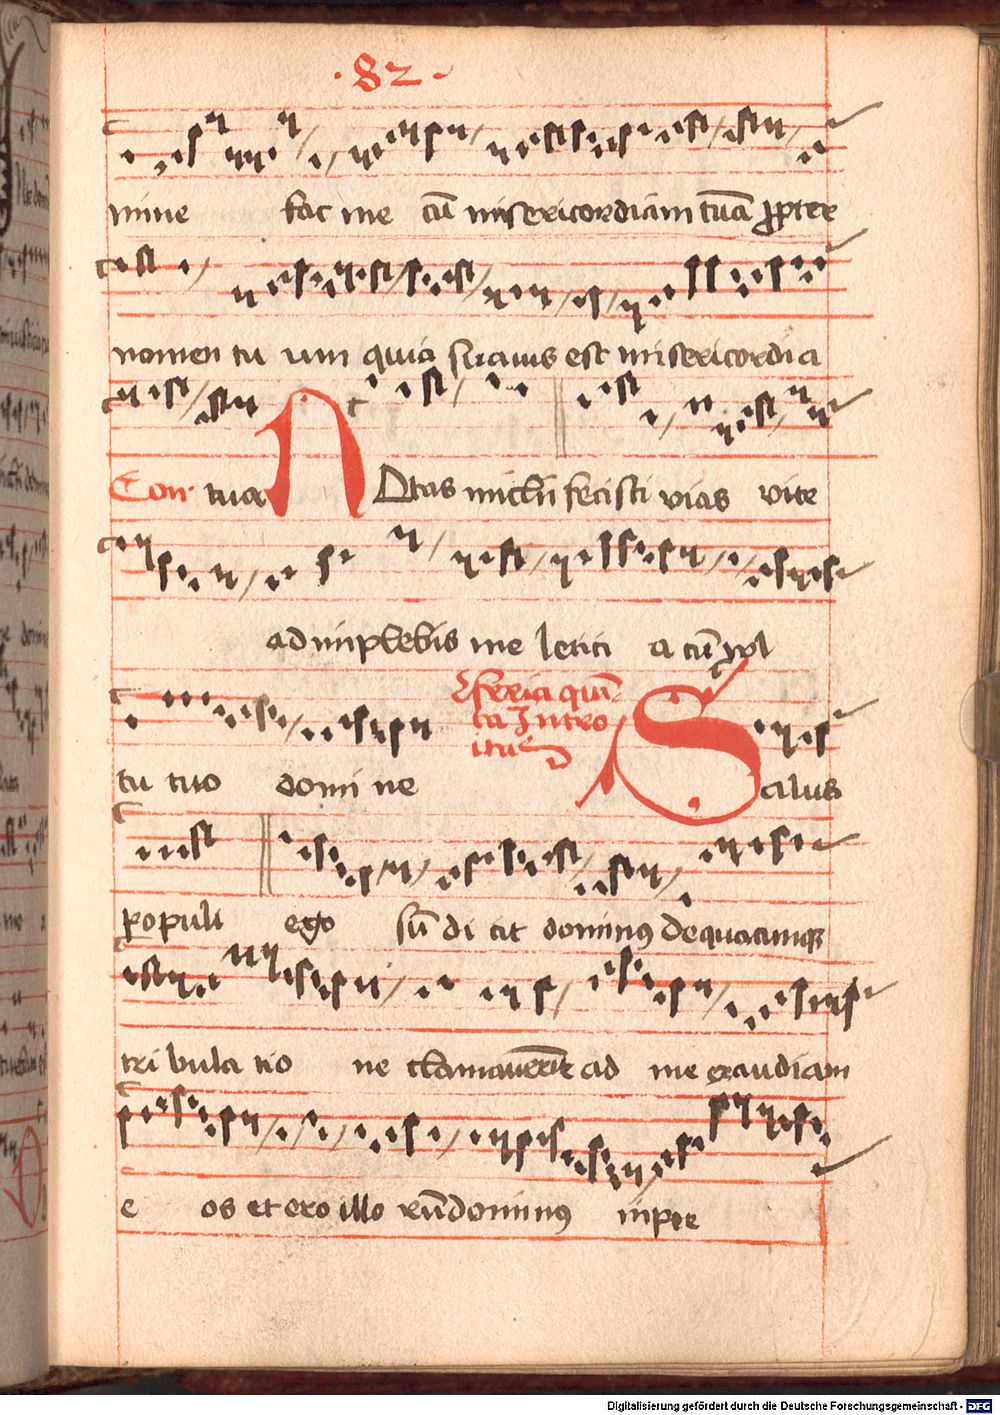 ·82·
mine fac me cū misericordiam tuā ꝓpter
nomen tu um quia suauis est misericordia
Com̄ tua N Otas michi fecisti vias vite
adimplebis me letici a cū wl
tu tuo domi ne
feria quin-
ta Intro
itus
S alus
populi ego sū di cit dominꝰ De quacumqꝫ
tri bula tio ne clamauerīt ad me exaudiam
e os et ero illo rū dominꝰ inpre
Digitalisierung gefördert durch die Deutsche Forschungsgemeinschaft - DFG